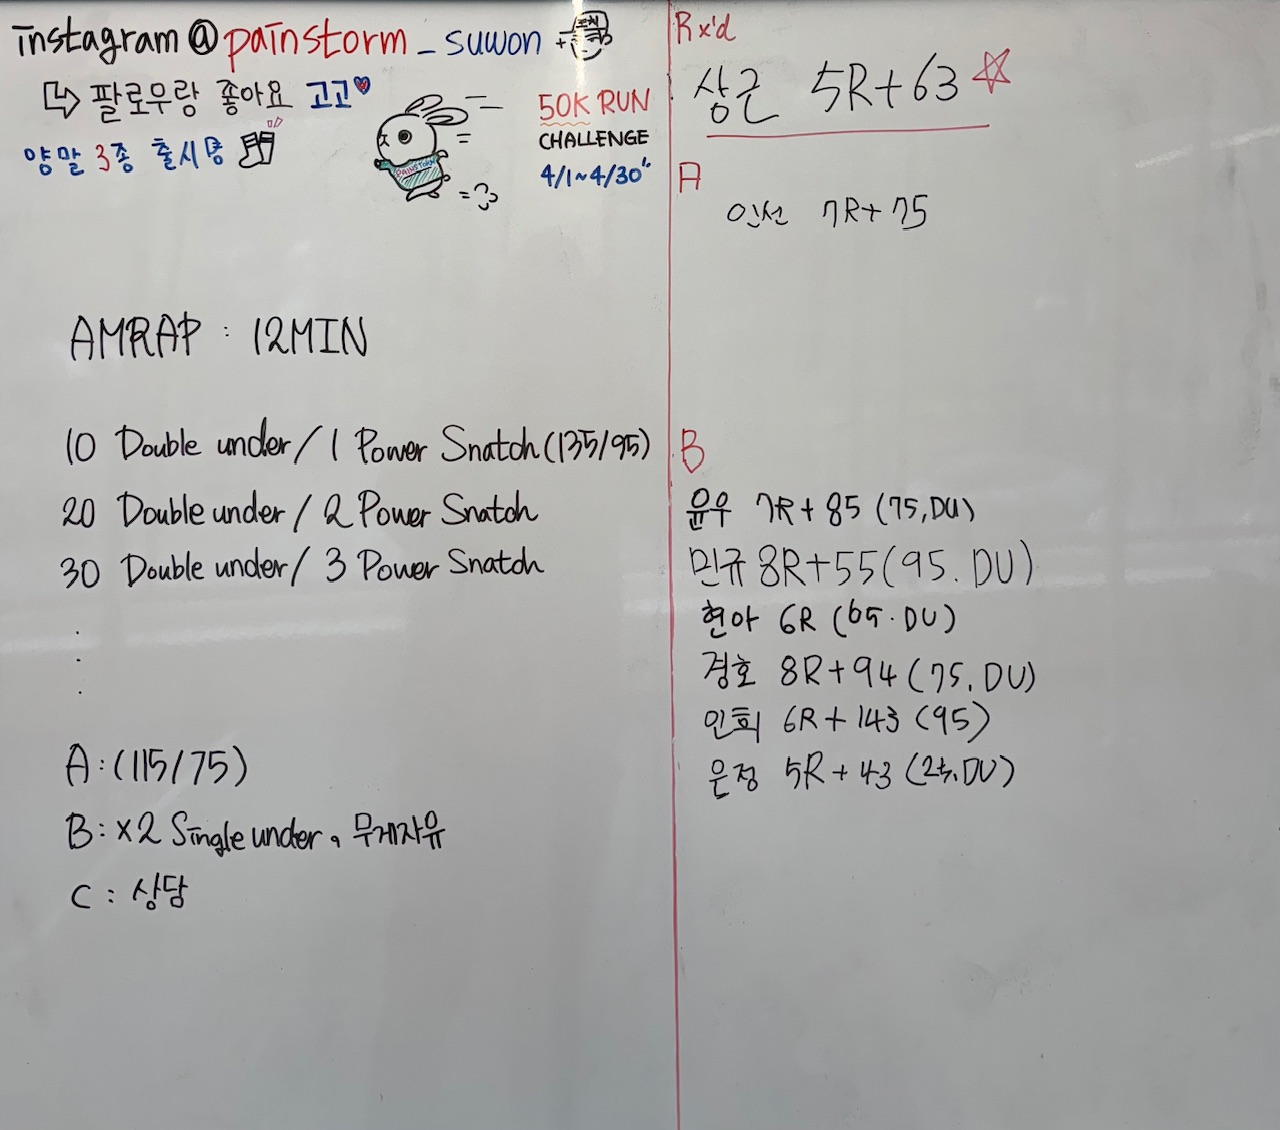 instagram@painstorm_suwon
팔로우랑 좋아요 고고
양말 3종 출시용
50K RUN
CHALLENGE
4/1~4/30"
PAINSTORM
AMRAP : 12MIN
10 Double under / 1 Power Snatch (135/95)
20 Double under / 2 Power Snatch
30 Double under / 3 Power Snatch
.
.
.
A : (115/75)
B : x2 Single under, 무게자유
C : 상담
Rx'd
상근 5R+63
A
인선 7R+75
B
윤우 7R+85 (75, DU)
민규 8R+55 (95. DU)
현아 6R (65. DU)
경호 8R+94 (75. DU)
인회 6R+143 (95)
은정 5R+43 (25. DU)